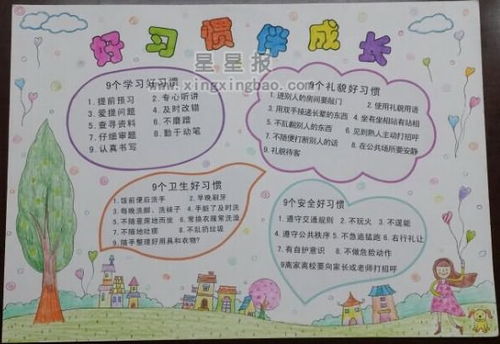 好习惯伴成长
星星报
www.xingxingbao.com
9个学习好习惯
1. 提前预习 2. 专心听讲
3. 爱提问题 4. 及时改错
5. 查寻资料 6. 不磨蹭
7. 仔细审题 8. 勤于动笔
9. 认真书写
9个礼貌好习惯
1. 进别人的房间要敲门 2. 使用礼貌用语
3. 用双手接递长辈的东西 4. 坐有坐相站有站相
5. 不乱翻别人的东西 6. 见到熟人主动打招呼
7. 不随便打断别人的话 8. 在公共场所要安静
9. 礼貌待客
9个卫生好习惯
1. 饭前便后洗手 2. 早晚刷牙
3. 每晚洗脚、洗袜子 4. 手脏了及时洗
5. 不随意席地而座 6. 常换衣服常洗澡
7. 不随地吐痰 8. 不乱扔垃圾
9. 随手整理好用具和衣物?
9个安全好习惯
1. 遵守交通规则 2. 不玩火 3. 不逞能
4. 遵守公共秩序 5. 不急追猛跑 6. 右行礼让
7. 有自护意识 8. 不做危险动作
9离家离校要向家长或老师打招呼